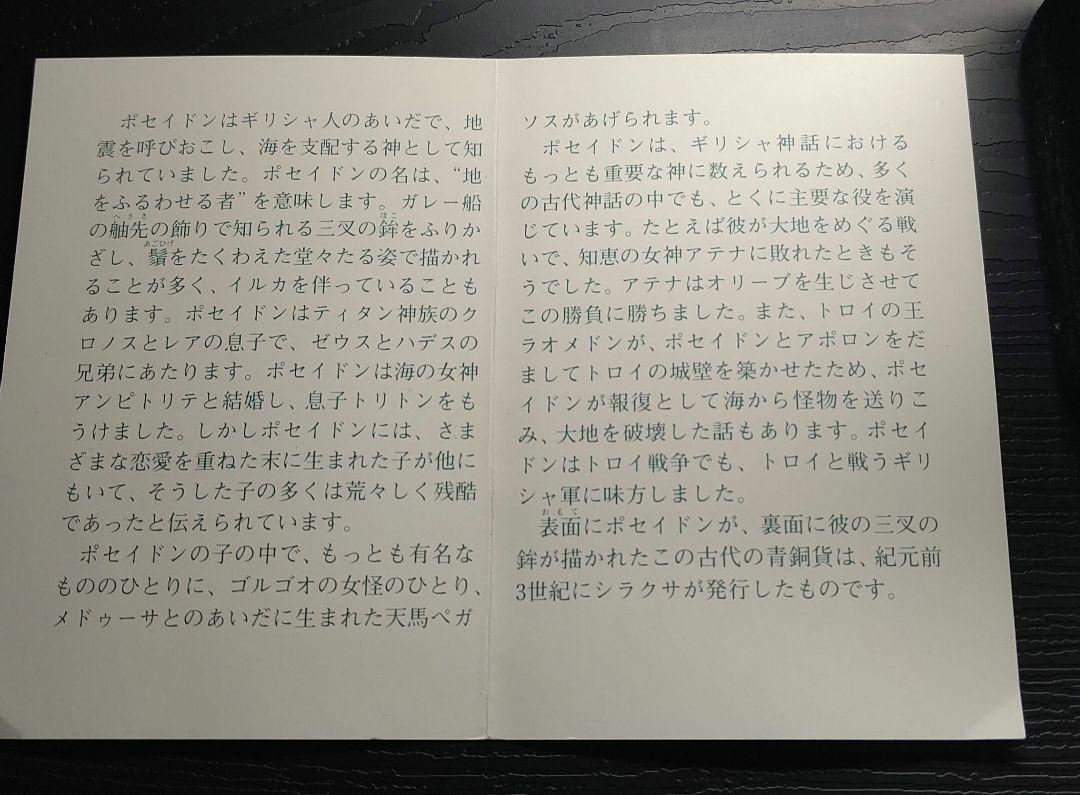 ポセイドンはギリシャ人のあいだで、地
震を呼びおこし、海を支配する神として知
られていました。ポセイドンの名は、“地
をふるわせる者”を意味します。ガレー船
の舳先の飾りで知られる三叉の鉾をふりか
ざし、鬚をたくわえた堂々たる姿で描かれ
ることが多く、イルカを伴っていることも
あります。ポセイドンはティタン神族のク
ロノスとレアの息子で、ゼウスとハデスの
兄弟にあたります。ポセイドンは海の女神
アンピトリテと結婚し、息子トリトンをも
うけました。しかしポセイドンには、さま
ざまな恋愛を重ねた末に生まれた子が他に
もいて、そうした子の多くは荒々しく残酷
であったと伝えられています。
ポセイドンの子の中で、もっとも有名な
もののひとりに、ゴルゴオの女怪のひとり、
メドゥーサとのあいだに生まれた天馬ペガ
ソスがあげられます。
ポセイドンは、ギリシャ神話における
もっとも重要な神に数えられるため、多く
の古代神話の中でも、とくに主要な役を演
じています。たとえば彼が大地をめぐる戦
いで、知恵の女神アテナに敗れたときもそ
うでした。アテナはオリーブを生じさせて
この勝負に勝ちました。また、トロイの王
ラオメドンが、ポセイドンとアポロンをだ
ましてトロイの城壁を築かせたため、ポセ
イドンが報復として海から怪物を送りこ
み、大地を破壊した話もあります。ポセイ
ドンはトロイ戦争でも、トロイと戦うギリ
シャ軍に味方しました。
表面にポセイドンが、裏面に彼の三叉の
鉾が描かれたこの古代の青銅貨は、紀元前
3世紀にシラクサが発行したものです。